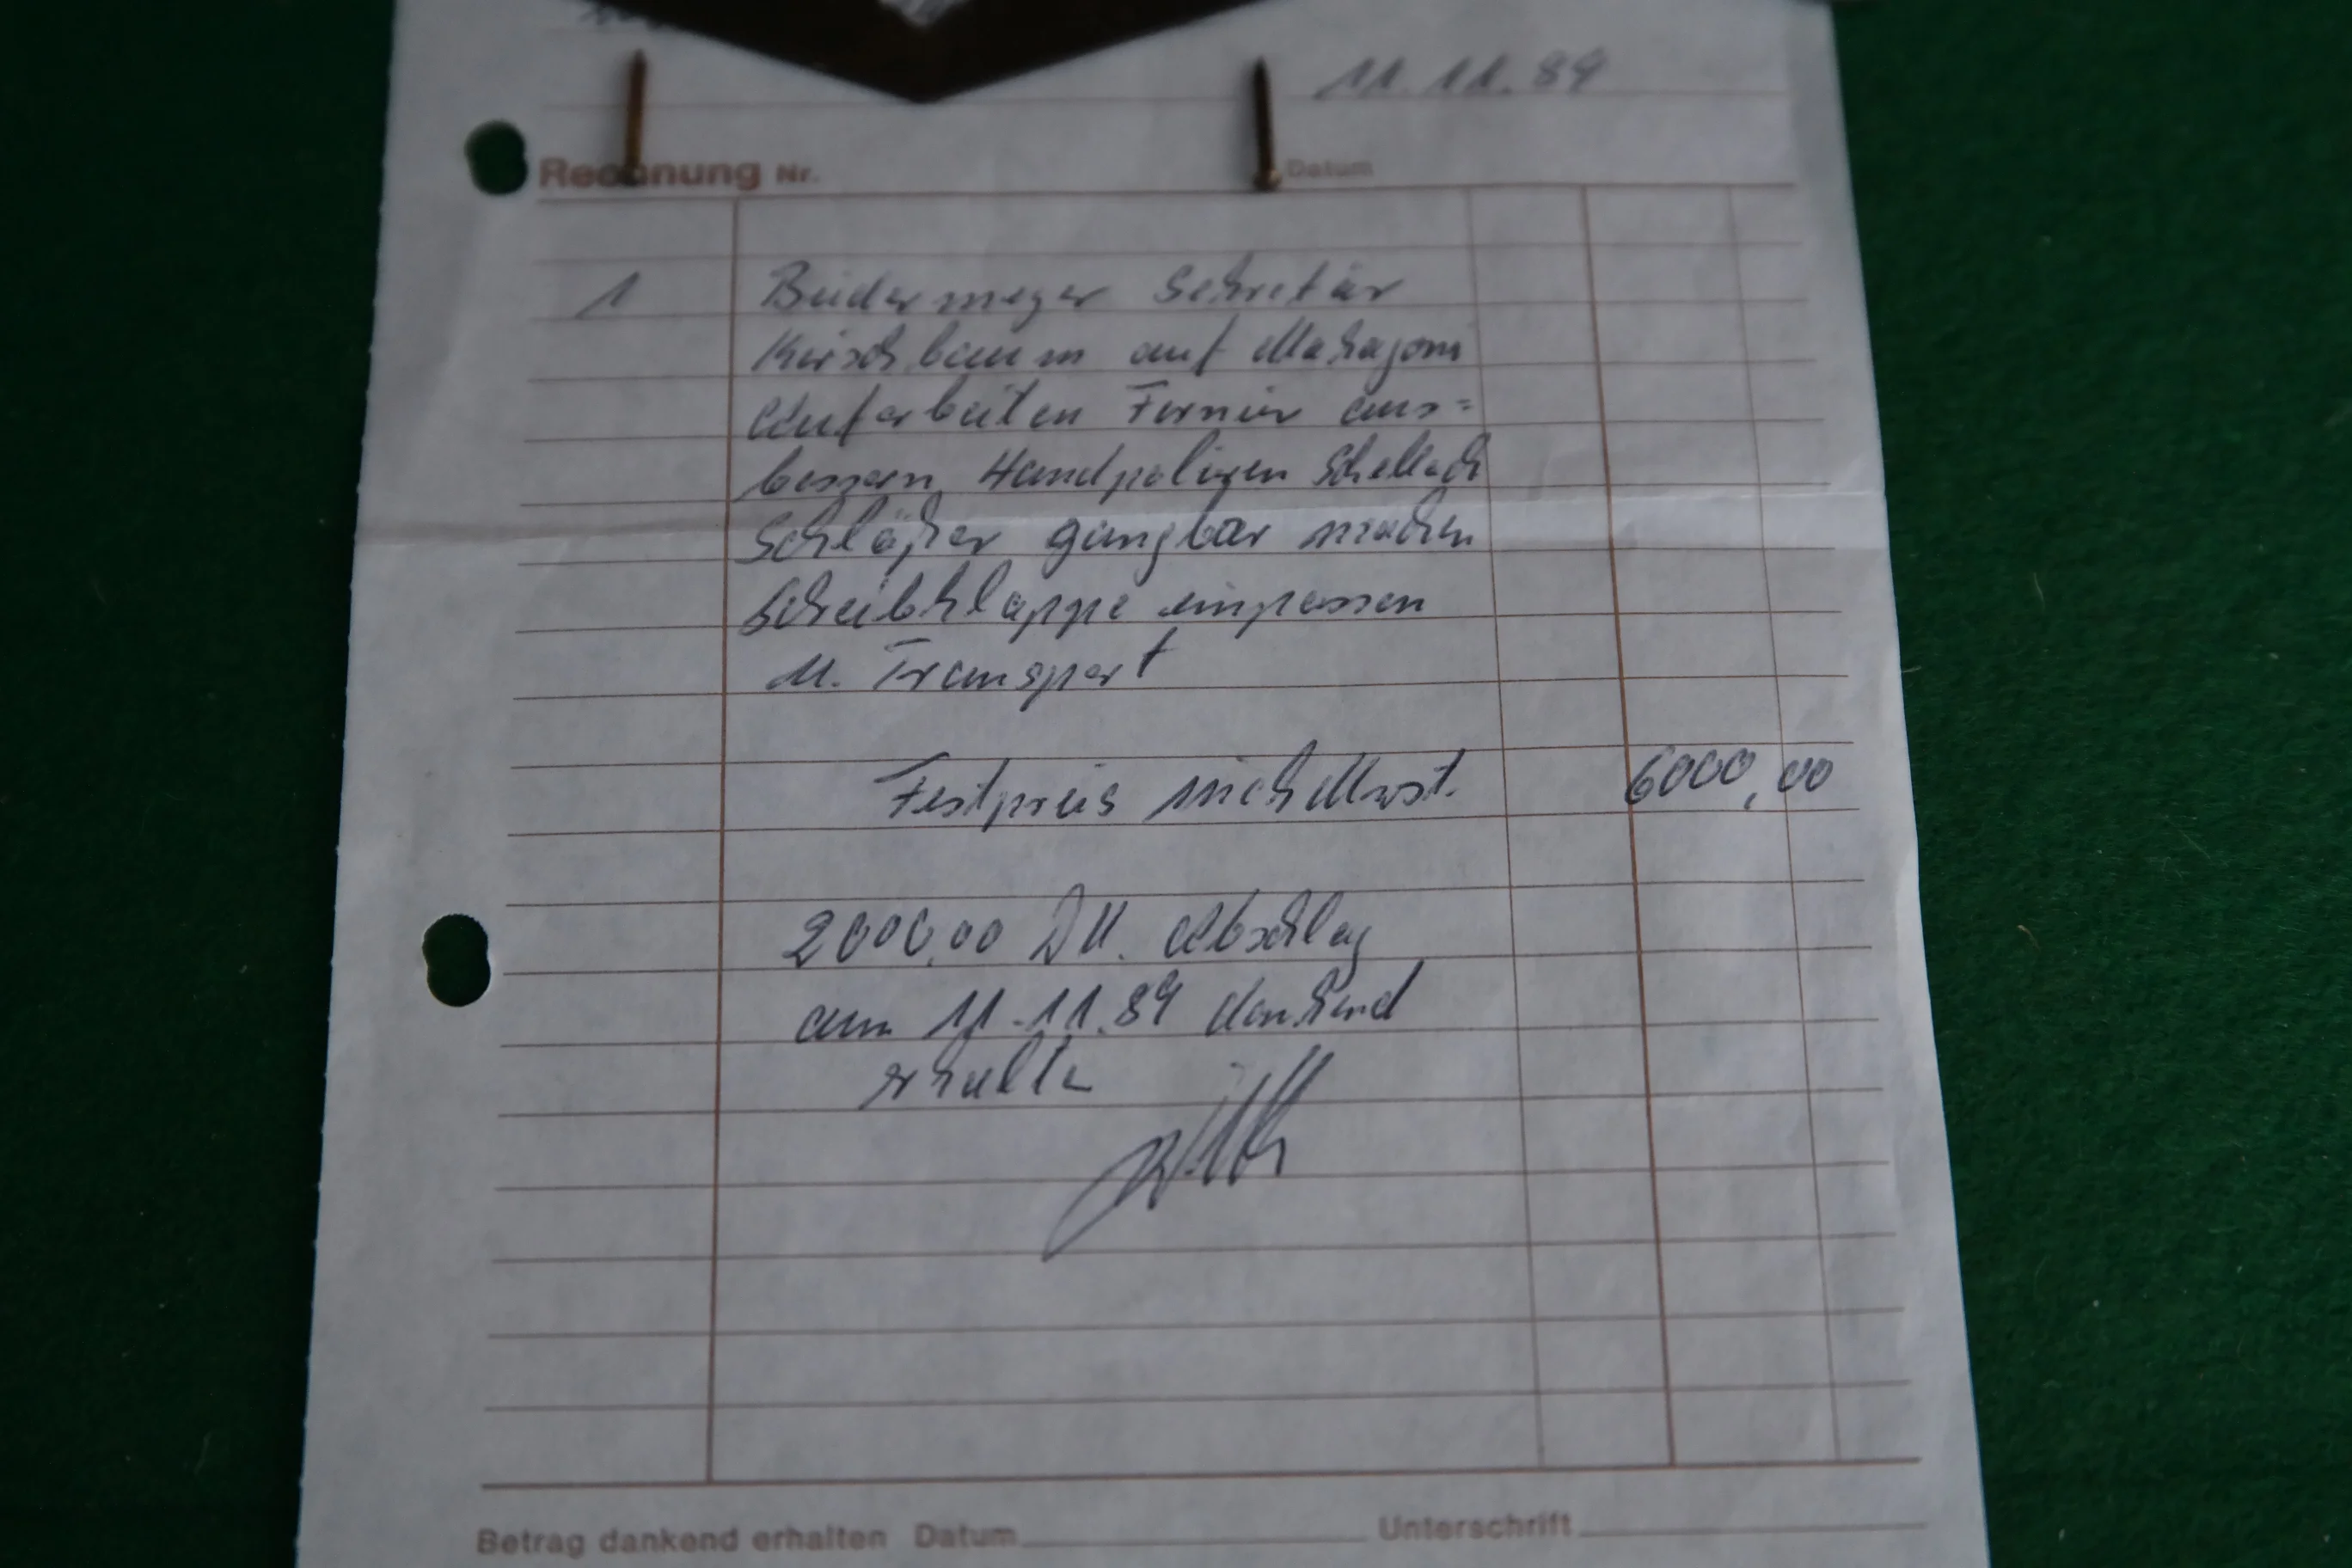 11.11.89
Rechnung Nr. Datum
1 Biedermeyer Sekretär
Kirschbaum auf Mahagoni
Aufarbeiten Furnier aus=
bessern Handpolieren Schellack
Schlößer gangbar machen
Schreibklappe einpassen
u. Transport
Festpreis Mwst. 6000,00
2000,00 DM. Abschlag
am 11.11.89 dankend
erhalten
Betrag dankend erhalten Datum Unterschrift